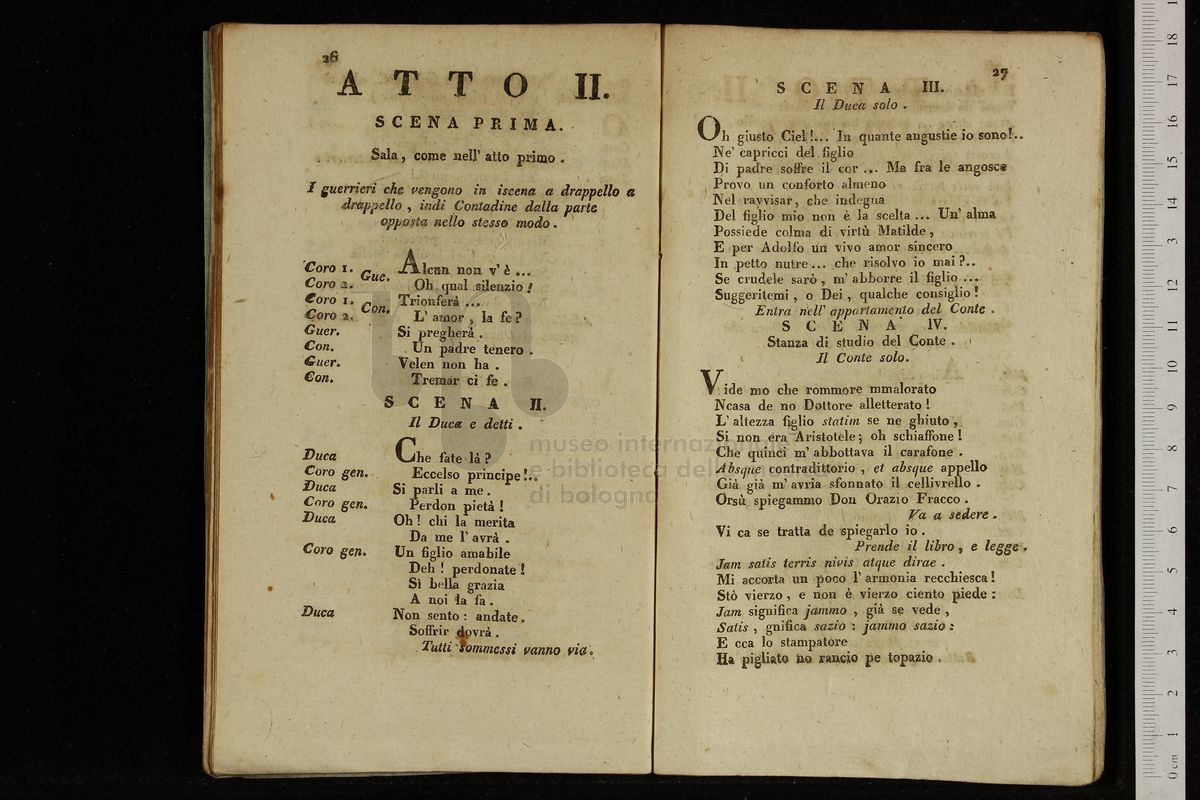 26
ATTO II.
SCENA PRIMA.
Sala, come nell' atto primo.
I guerrieri che vengono in iscena a drappello a
drappello, indi Contadine dalla parte
opposta nello stesso modo.
Coro 1. Gue. Alcun non v' è ...
Coro 2. Oh qual silenzio!
Coro 1. Con. Trionferà ...
Coro 2. L' amor, la fe?
Guer. Si pregherà.
Con. Un padre tenero.
Guer. Velen non ha.
Con. Tremar ci fe.
SCENA II.
Il Duca e detti.
Duca Che fate là?
Coro gen. Eccelso principe!..
Duca Si parli a me.
Coro gen. Perdon pietà!
Duca Oh! chi la merita
Da me l' avrà.
Coro gen. Un figlio amabile
Deh! perdonate!
Sì bella grazia
A noi la fa.
Duca Non sento: andate.
Soffrir dovrà.
Tutti sommessi vanno via.
27
SCENA III.
Il Duca solo.
Oh giusto Ciel!... In quante angustie io sono!..
Ne' capricci del figlio
Di padre soffre il cor ... Ma fra le angosce
Provo un conforto almeno
Nel ravvisar, che indegna
Del figlio mio non è la scelta ... Un' alma
Possiede colma di virtù Matilde,
E per Adolfo un vivo amor sincero
In petto nutre ... che risolvo io mai?..
Se crudele sarò, m' abborre il figlio ...
Suggeritemi, o Dei, qualche consiglio!
Entra nell' appartamento del Conte.
SCENA IV.
Stanza di studio del Conte.
Il Conte solo.
Vide mo che rommore mmalorato
Ncasa de no Dottore alletterato!
L' altezza figlio statim se ne ghiuto,
Si non era Aristotele; oh schiaffone!
Che quinci m' abbottava il carafone.
Absque contradittorio, et absque appello
Già già m' avria sfonnato il cellivrello.
Orsù spiegammo Don Orazio Fracco.
Va a sedere.
Vi ca se tratta de spiegarlo io.
Prende il libro, e legge.
Jam satis terris nivis atque dirae.
Mi accorta un poco l' armonia recchiesca!
Stò vierzo, e non è vierzo ciento piede:
Jam significa jammo, già se vede,
Satis, gnifica sazio: jammo sazio:
E cca lo stampatore
Ha pigliato no rancio pe topazio.
museo internazionale
e biblioteca della
di bologna